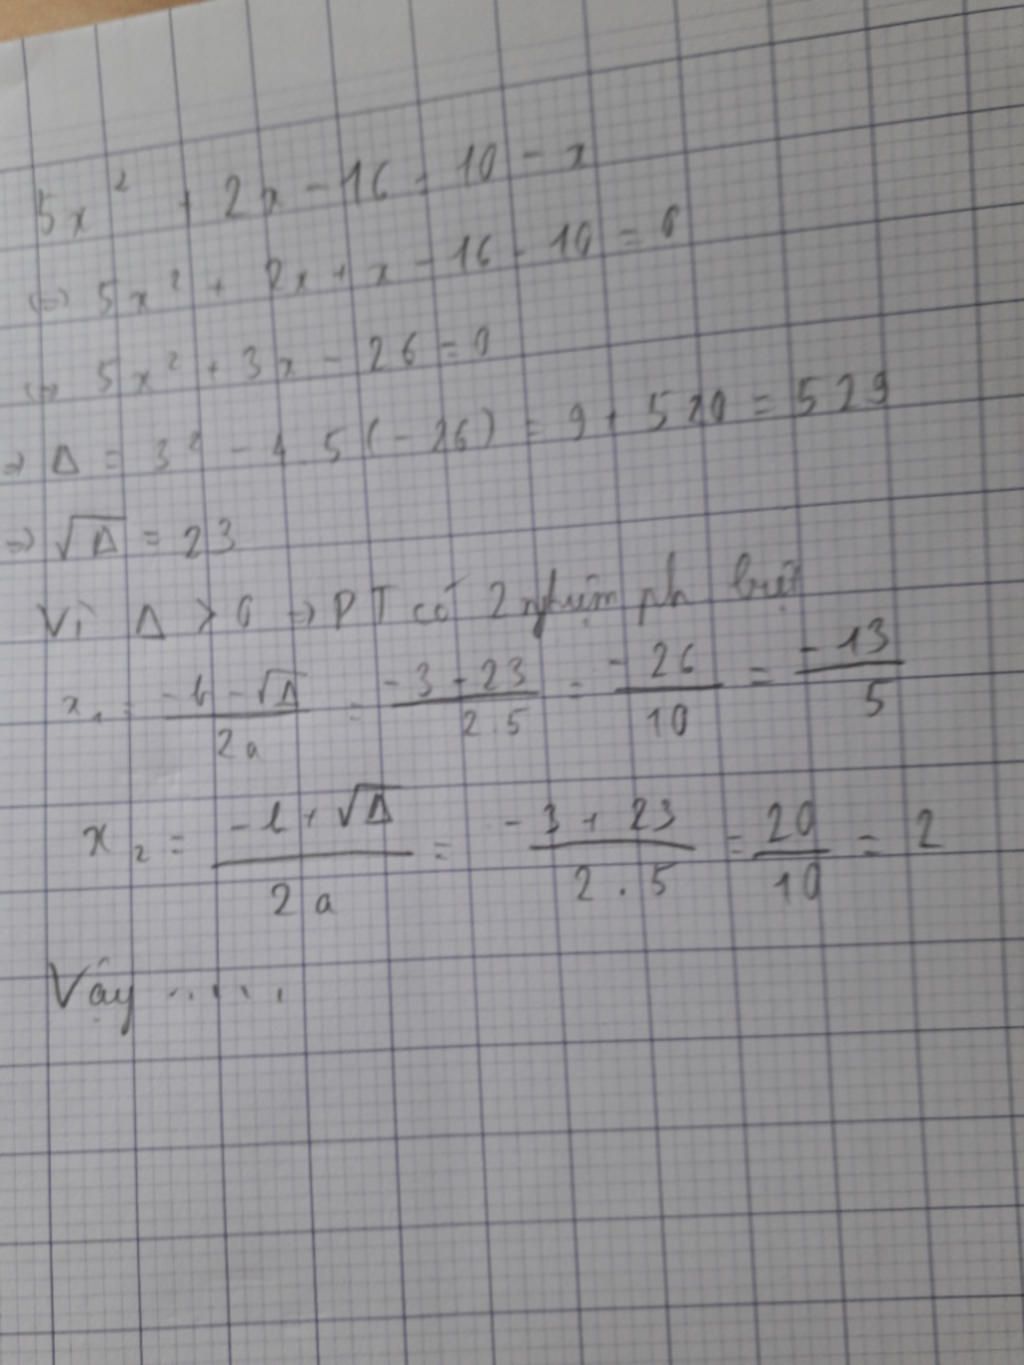 5x² + 2x - 16 = 10 - x
<=> 5x² + 2x + x - 16 - 10 = 0
<=> 5x² + 3x - 26 = 0
=> Δ = 3² - 4 5 (-26) = 9 + 520 = 529
=> √Δ = 23
Vì Δ > 0 => PT có 2 nghiệm ph biệt
x₁ = (-b - √Δ)/(2a) = (-3 - 23)/(2.5) = -26/10 = -13/5
x₂ = (-b + √Δ)/(2a) = (-3 + 23)/(2.5) = 20/10 = 2
Vậy .....